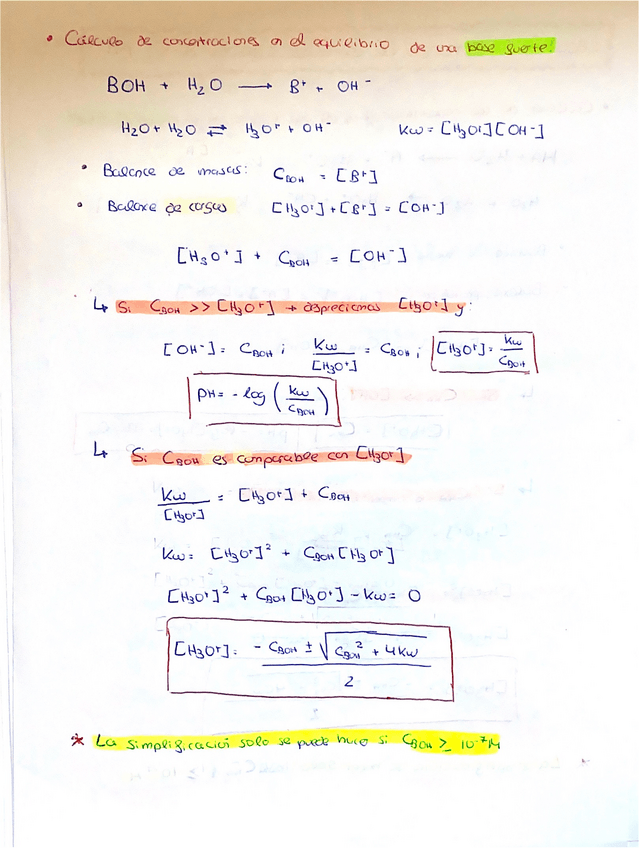 • Cálculo de concentraciones en el equilibrio de una base fuerte:
BOH + H₂O ⟶ B⁺ + OH⁻
H₂O + H₂O ⇄ H₃O⁺ + OH⁻ Kw = [H₃O⁺][OH⁻]
• Balance de masas: C_BOH = [B⁺]
• Balance de cargas [H₃O⁺] + [B⁺] = [OH⁻]
[H₃O⁺] + C_BOH = [OH⁻]
↳ Si C_BOH >> [H₃O⁺] → despreciamos [H₃O⁺] y:
[OH⁻] = C_BOH ; Kw/[H₃O⁺] = C_BOH ; [H₃O⁺] = Kw/C_BOH
pH = -log (Kw/C_BOH)
↳ Si C_BOH es comparable con [H₃O⁺]
Kw/[H₃O⁺] = [H₃O⁺] + C_BOH
Kw = [H₃O⁺]² + C_BOH [H₃O⁺]
[H₃O⁺]² + C_BOH [H₃O⁺] - Kw = 0
[H₃O⁺] = (-C_BOH ± √(C_BOH² + 4Kw))/2
* La simplificación solo se puede hacer si C_BOH ≥ 10⁻⁷M